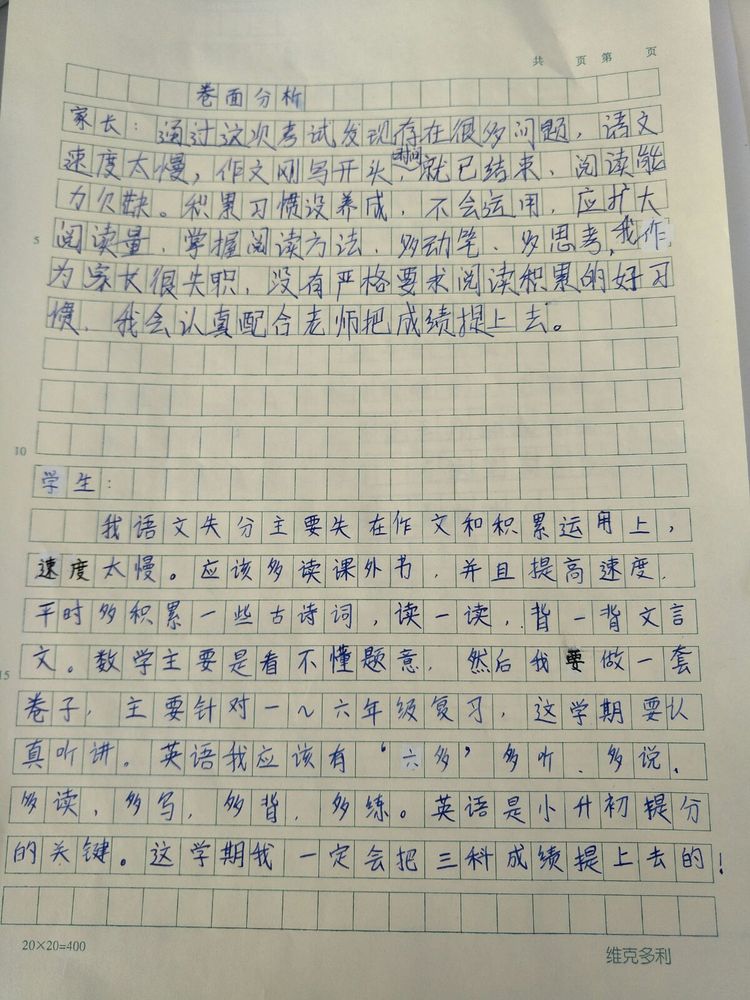 共 页 第 页
卷面分析
家长：通过这次考试发现存在很多问题，语文
速度太慢，作文刚写开头，时间就已结束、阅读能
力欠缺。积累习惯没养成，不会运用，应扩大
5 阅读量，掌握阅读方法、多动笔、多思考，我作
为家长很失职，没有严格要求阅读积累的好习
惯，我会认真配合老师把成绩提上去。
10
学生：
我语文失分主要失在作文和积累运用上，
速度太慢。应该多读课外书，并且提高速度，
平时多积累一些古诗词，读一读，背一背文言
15 文。数学主要是看不懂题意，然后我要做一套
卷子，主要针对一～六年级复习，这学期要认
真听讲。英语我应该有‘六多’多听、多说、
多读、多写，多背，多练。英语是小升初提分
的关键。这学期我一定会把三科成绩提上去的！
20×20=400 维克多利